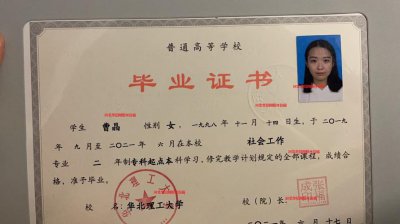 普通高等学校
毕业证书
学生 曹晶 性别 女，一九九八年十一月十四日生，于二〇一九
年九月至二〇二一年六月在本校 社会工作
专业 二年制专科起点本科学习，修完教学计划规定的全部课程，成绩合
格，准予毕业。
校 名：华北理工大学 校（院）长：
六月十七日